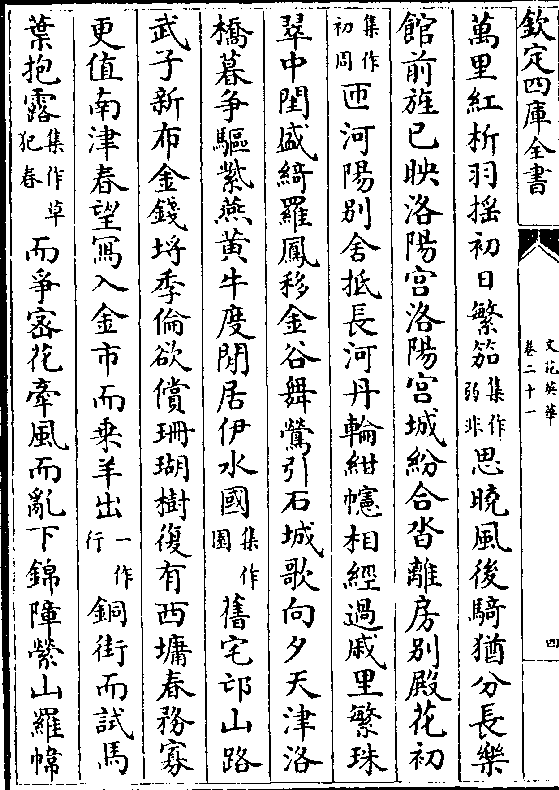 欽定四庫全書
文苑英華
卷二十一
四
萬里紅析羽搖初日繁笳集作弱非思曉風後騎猶分長樂
館前旌已映洛陽宮洛陽宮城紛合沓離房別殿花初
集作初周匝河陽別舍抵長河丹輪紺幰相經過戚里繁珠
翠中閨盛綺羅鳳移金谷舞鶯引石城歌向夕天津洛
橋暮争驅紫燕黄牛度閒居伊水國集作園舊宅邙山路
武子新布金錢埒季倫欲償珊瑚樹復有西墉春務寡
更值南津春望寫入金市而乗羊出一作行銅街而試馬
葉抱露集作草犯春而爭密花牽風而亂下錦障縈山羅幃